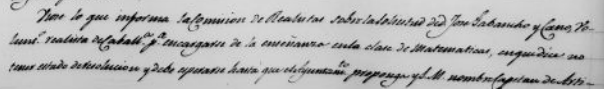 Visto lo que informa la Comision de Realistas sobre la solicitud de D. Jose Gabancho y Cano, Vo-
lunt.º realista de Caball.ª p.ª encargarse de la enseñanza en la clase de Matematicas, en que dice no
tener estado de resolucion y debe esperarse hasta que el Ayuntam.to proponga y S.M. nombre Capitan de Arti-